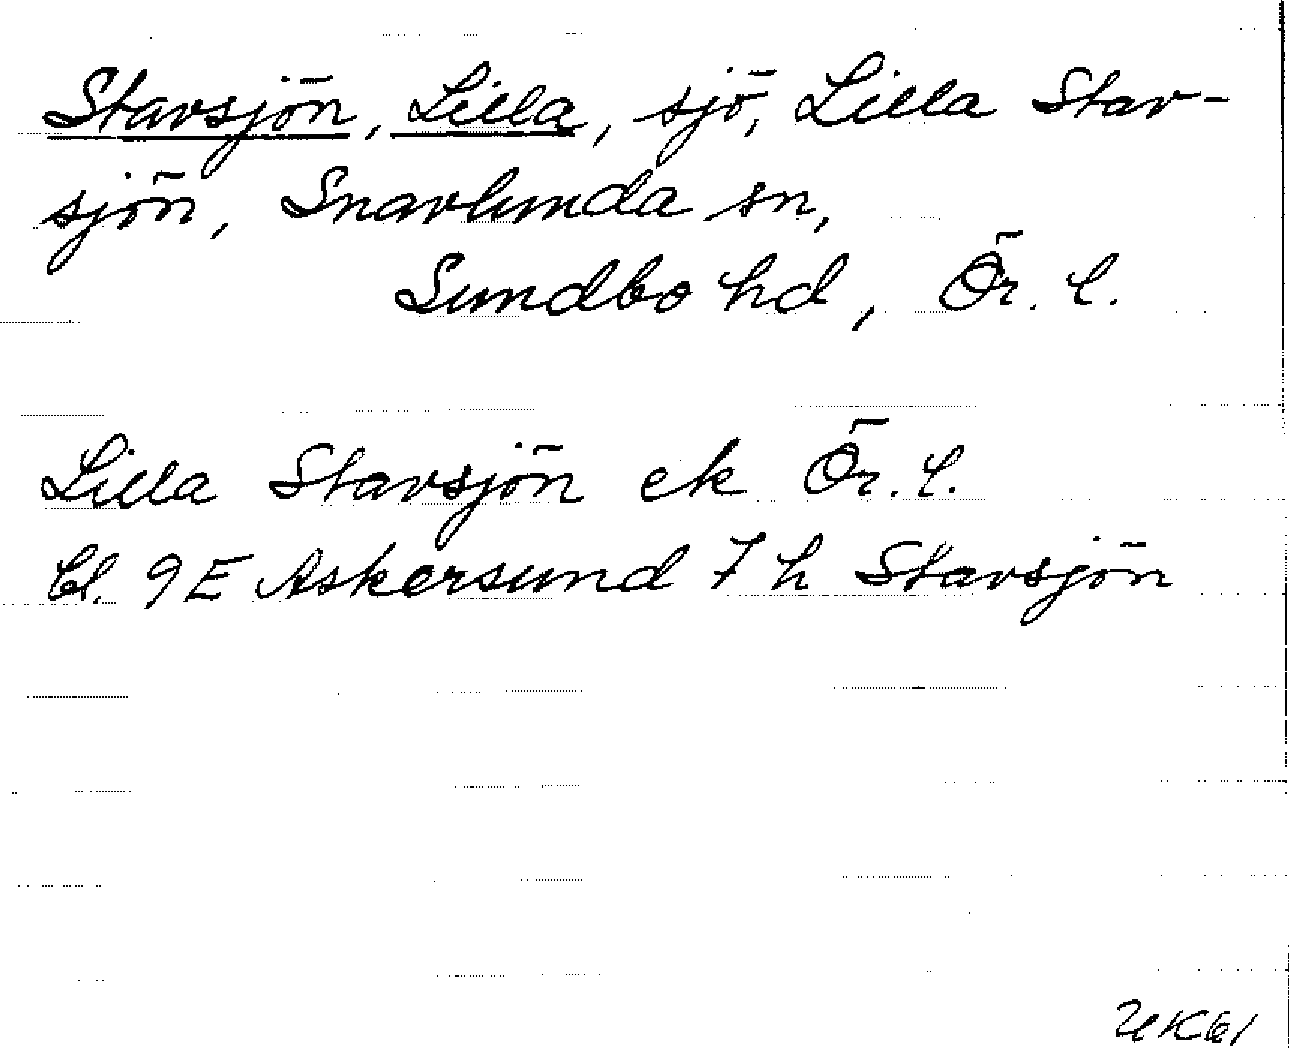 Stavsjön, Lilla, sjö, Lilla Stav-
sjön, Snavlunda sn,
Sundbo hd, Ör. l.
Lilla Stavsjön ek Ör. l.
bl. 9E Askersund 7 h Stavsjön